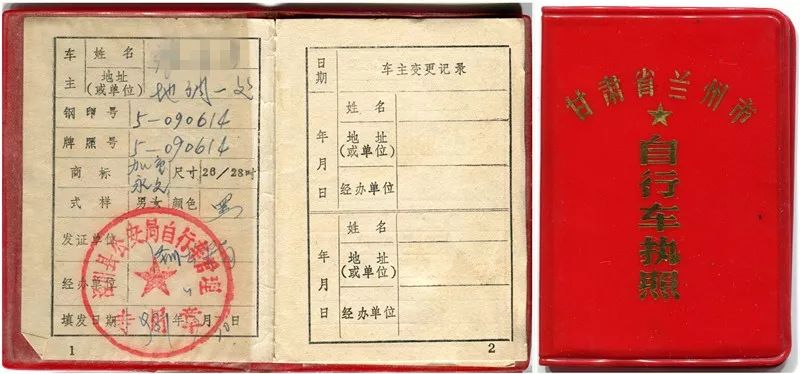 车主 姓名
地址(或单位) 地调一处
钢印号 5-090614
牌照号 5-090614
商标 加重 永久 尺寸 26/28吋
式样 男女 颜色 黑
发证单位
经办单位
填发日期 年 月 日
县公安局自行车管理
专用章
1
日期 车主变更记录
年月日
姓名
地址(或单位)
经办单位
年月日
姓名
地址(或单位)
经办单位
2
甘肃省兰州市
自行车执照